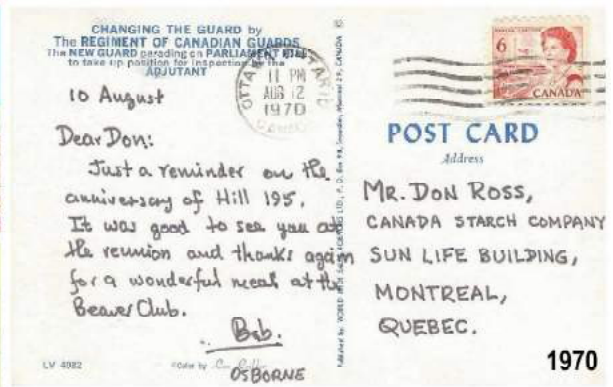 CHANGING THE GUARD by
The REGIMENT OF CANADIAN GUARDS
The NEW GUARD parading on PARLIAMENT HILL
to take up position for inspection by the
ADJUTANT
10 August
Dear Don:
Just a reminder on the
anniversary of Hill 195.
It was good to see you at
the reunion and thanks again
for a wonderful meal at the
Beaver Club.
Bob.
OSBORNE
LV-4082
Color by
OTTAWA ONTARIO
11 PM
AUG 12
1970
CANADA
6
CANADA
POST CARD
Address
MR. DON ROSS,
CANADA STARCH COMPANY
SUN LIFE BUILDING,
MONTREAL,
QUEBEC.
1970